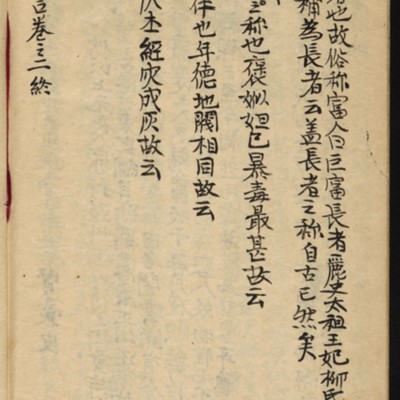 者也故俗称富人曰巨富長者麗史太祖王妃柳氏
稱為長者云盖長者之称自古已然矣
之称也褒姒妲己暴毒最甚故云
伴也年德地閥相同故云
經灾成灰故云
言卷之二終